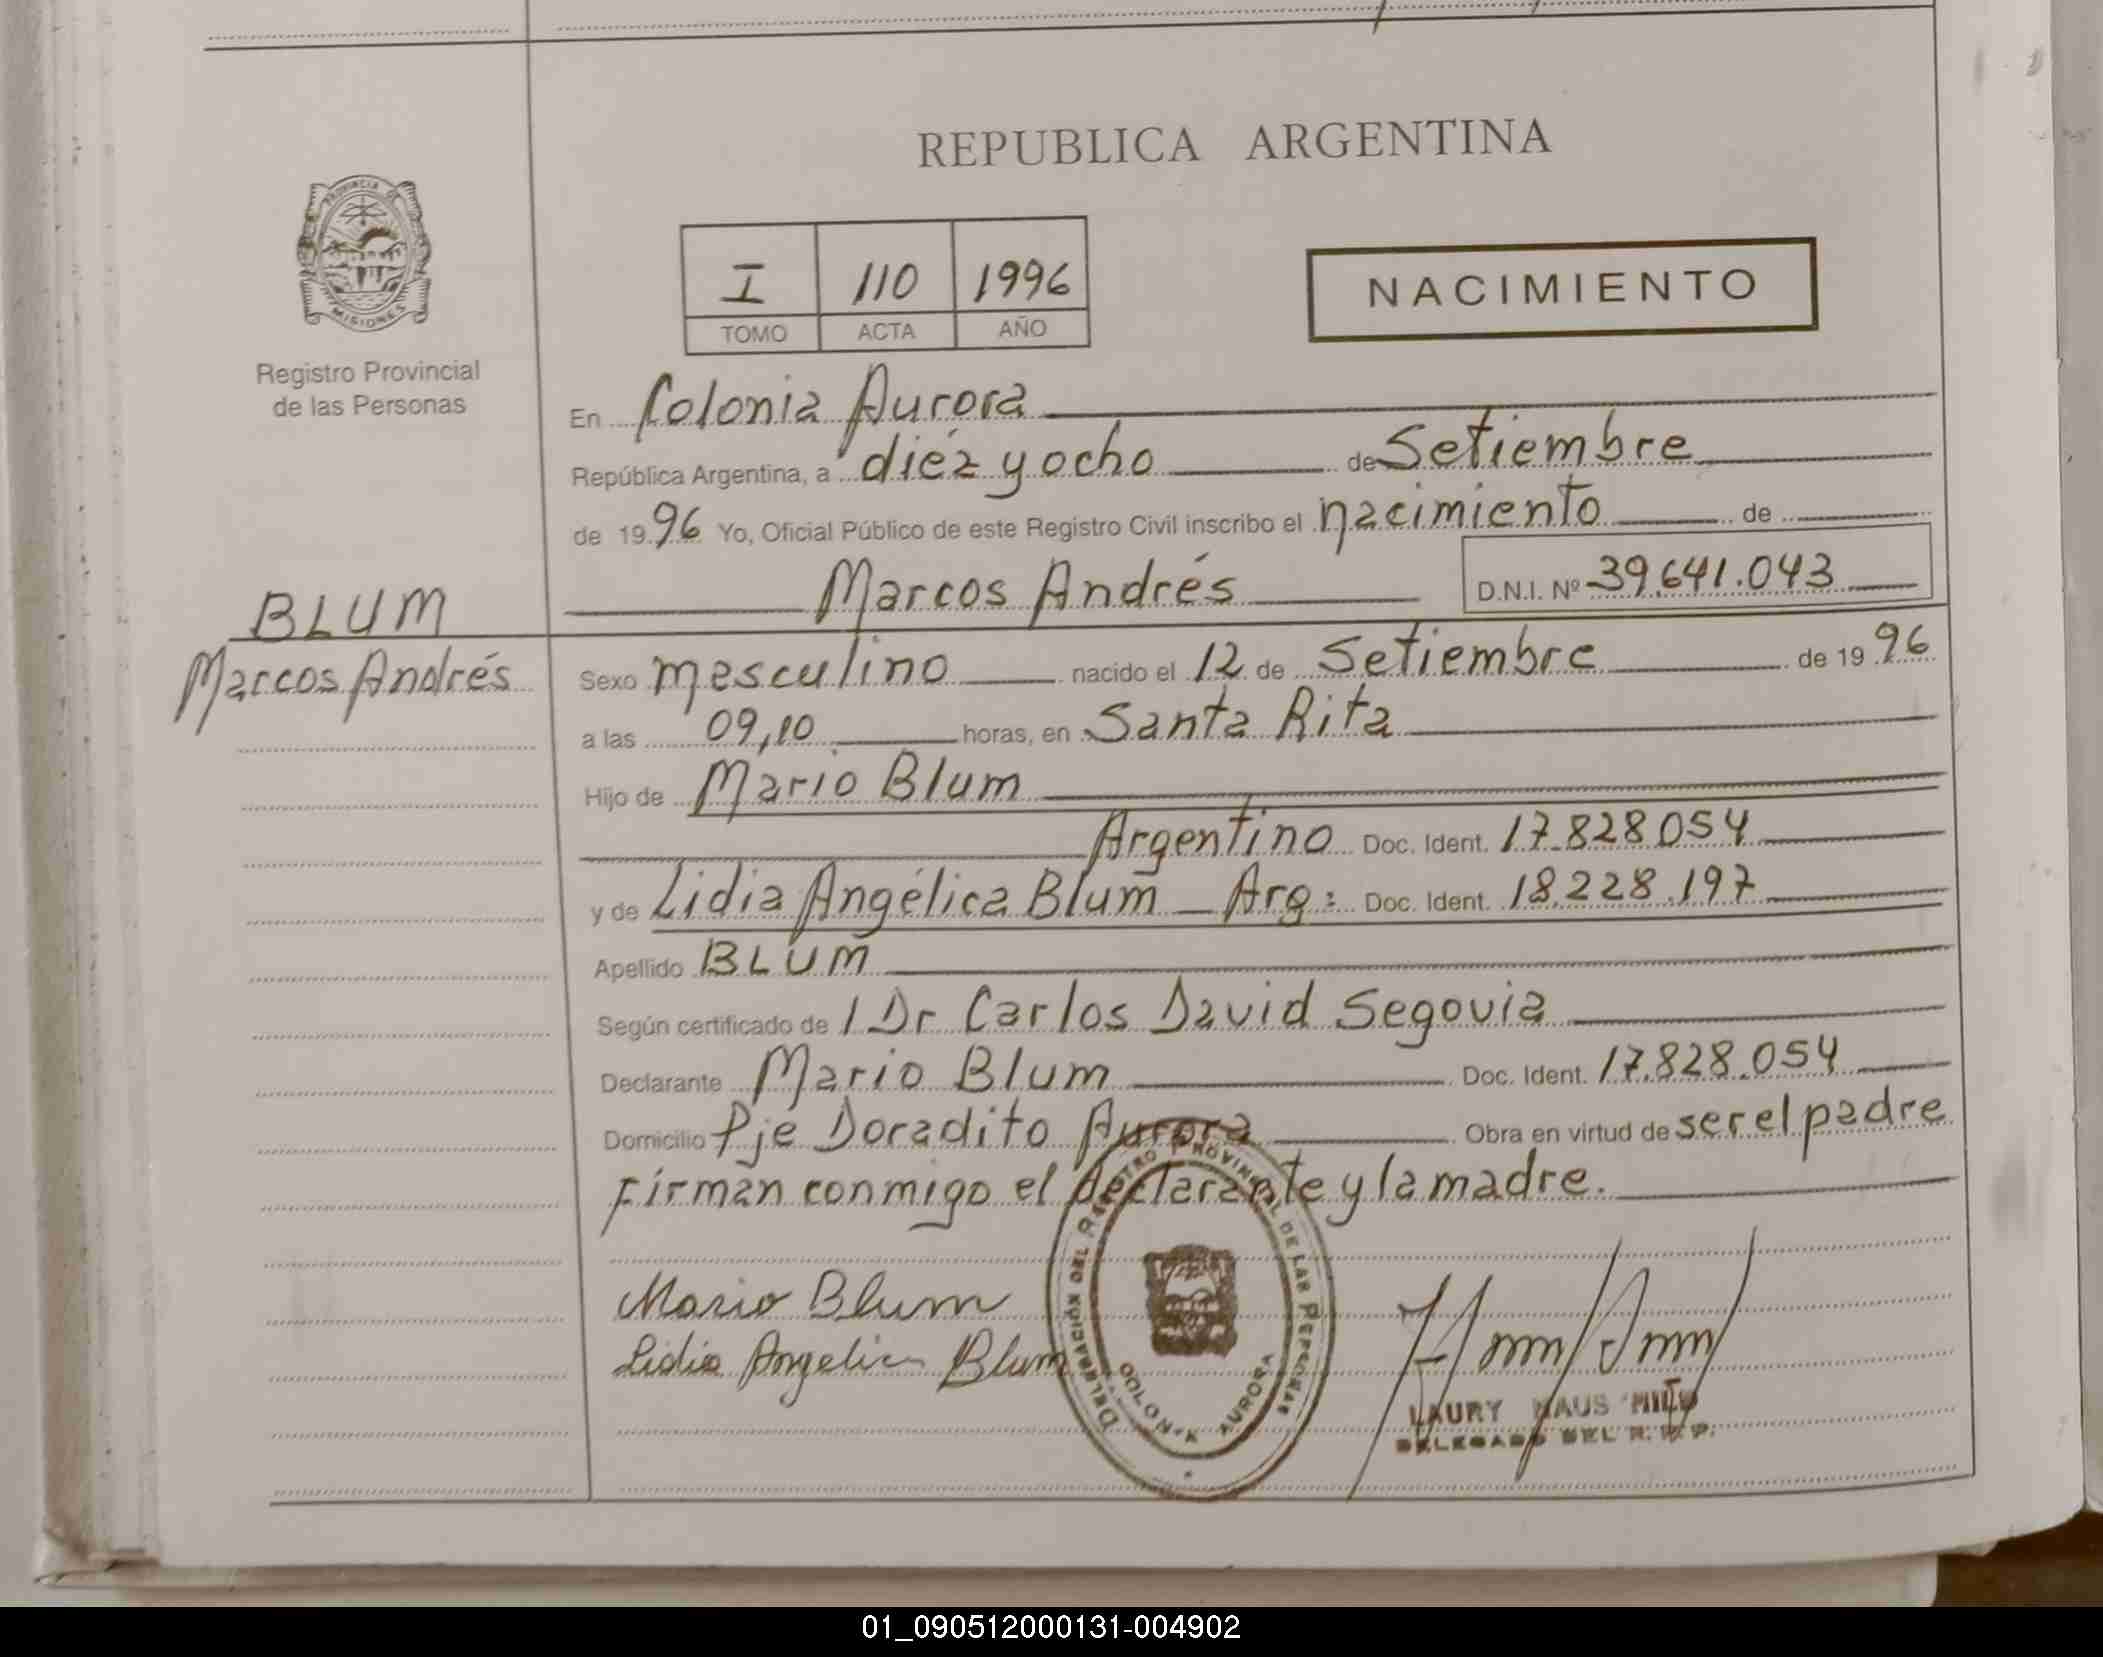 REPUBLICA ARGENTINA
PROVINCIA DE
MISIONES
Registro Provincial
de las Personas
I 110 1996
TOMO ACTA AÑO
NACIMIENTO
En Colonia Aurora
República Argentina, a diéz y ocho de Setiembre
de 1996 Yo, Oficial Público de este Registro Civil inscribo el nacimiento de
Marcos Andrés D.N.I. Nº 39.641.043
BLUM
Marcos Andrés
Sexo masculino nacido el 12 de Setiembre de 1996
a las 09,10 horas, en Santa Rita
Hijo de Mario Blum
Argentino Doc. Ident. 17.828.054
y de Lidia Angélica Blum Arg: Doc. Ident. 18.228.197
Apellido BLUM
Según certificado de l Dr Carlos David Segovia
Declarante Mario Blum Doc. Ident. 17.828.054
Domicilio Pje Doradito Aurora Obra en virtud de ser el padre
Firman conmigo el declarante y la madre.
Mario Blum
Lidia Angelica Blum
DELEGACIÓN DEL REGISTRO PROVINCIAL DE LAS PERSONAS
COLONIA AURORA
LAURY HAUS
DELEGADO DEL R. P. P.
01_090512000131-004902